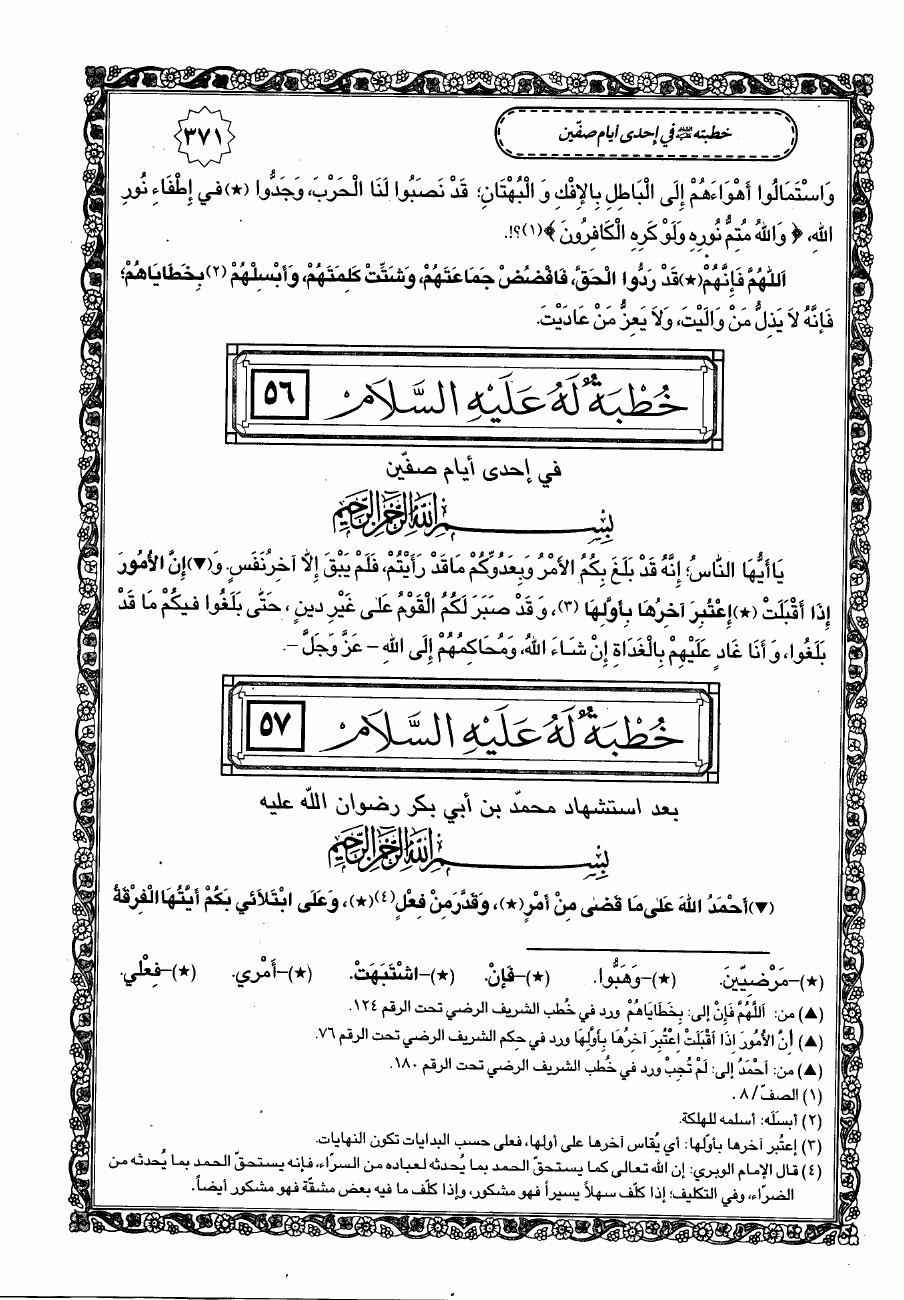 خطبته عليه السلام في إحدى أيام صفّين
٣٧١
وَاسْتَمَالُوا أَهْوَاءَهُمْ إِلَى الْبَاطِلِ بِالإِفْكِ وَ الْبُهْتَانِ؛ قَدْ نَصَبُوا لَنَا الْحَرْبَ، وَجَدُّوا (★) في إِطْفَاءِ نُورِ
اللهِ، ﴿ وَاللهُ مُتِمُّ نُورِهِ وَلَوْ كَرِهَ الْكَافِرُونَ ﴾(١)؟!.
اَللّهُمَّ فَإِنَّهُمْ(★)قَدْ رَدُّوا الْحَقَّ، فَافْضُضْ جَمَاعَتَهُمْ، وَشَتِّتْ كَلِمَتَهُمْ، وَأَبْسِلْهُمْ (٢)بِخَطَايَاهُمْ؛
فَإِنَّهُ لاَ يَذِلُّ مَنْ وَالَيْتَ، وَلاَ يَعِزُّ مَنْ عَادَيْتَ.
خُطْبَةٌ لَهُ عَلَيْهِ السَّلَامُ ٥٦
في إحدى أيام صفّين
بِسْمِ اللهِ الرَّحْمٰنِ الرَّحِيمِ
يَاأَيُّهَا النَّاسُ؛ إِنَّهُ قَدْ بَلَغَ بِكُمُ الأَمْرُ وَبِعَدُوِّكُمْ مَاقَدْ رَأَيْتُمْ، فَلَمْ يَبْقَ إِلاّ آخِرُنَفَسٍ. وَ(▼)إِنَّ الأُمُورَ
إِذَا أَقْبَلَتْ (★)إِعْتُبِرَ آخِرُهَا بِأَوَّلِهَا (٣)، وَ قَدْ صَبَرَ لَكُمُ الْقَوْمُ عَلى غَيْرِ دينٍ ، حَتّى بَلَغُوا فيكُمْ مَا قَدْ
بَلَغُوا، وَ أَنَا غَادٍ عَلَيْهِمْ بِالْغَدَاةِ إِنْ شَاءَ اللهُ، وَمُحَاكِمُهُمْ إِلَى اللهِ – عَزَّ وَجَلَّ –.
خُطْبَةٌ لَهُ عَلَيْهِ السَّلَامُ ٥٧
بعد استشهاد محمّد بن أبي بكر رضوان اللّه عليه
بِسْمِ اللهِ الرَّحْمٰنِ الرَّحِيمِ
(▼)أَحْمَدُ اللهَ عَلى مَا قَضى مِنْ أَمْرٍ(★)، وَقَدَّرَمِنْ فِعْلٍ(٤)(★)، وَعَلَى ابْتَلاَئي بِكُمْ أَيَّتُهَا الْفِرْقَةُ
(★)–مَرْضِيّينَ. (★)–وَهَبُّوا. (★)–فَإِنْ. (★)–اشْتَبَهَتْ. (★)–أَمْري. (★)–فِعْلي.
(▲) من: اَللّهُمَّ فَإِنْ إلى: بِخَطَايَاهُمْ ورد في خُطب الشريف الرضي تحت الرقم ١٢٤.
(▲) أَنَّ الأُمُورَ إذَا أَقْبَلَتْ إعْتُبِرَ آخِرُهَا بِأَوَّلِهَا ورد في حِكم الشريف الرضي تحت الرقم ٧٦.
(▲) من: أَحْمَدُ إلى: لَمْ تُجِبْ ورد في خُطب الشريف الرضي تحت الرقم ١٨٠.
(١) الصفّ/ ٨.
(٢) أبسلَه: أسلمه للهلكة.
(٣) إعتُبر آخرها بأوّلها: أي يُقاس آخرها على أولها، فعلى حسب البدايات تكون النهايات.
(٤) قال الإمام الوبري: إن الله تعالى كما يستحقّ الحمد بما يُحدثه لعباده من السرّاء، فإنه يستحقّ الحمد بما يُحدثه من
الضرّاء، وفي التكليف؛ إذا كلّف سهلاً يسيراً فهو مشكور، وإذا كلّف ما فيه بعض مشقّة فهو مشكور أيضاً.